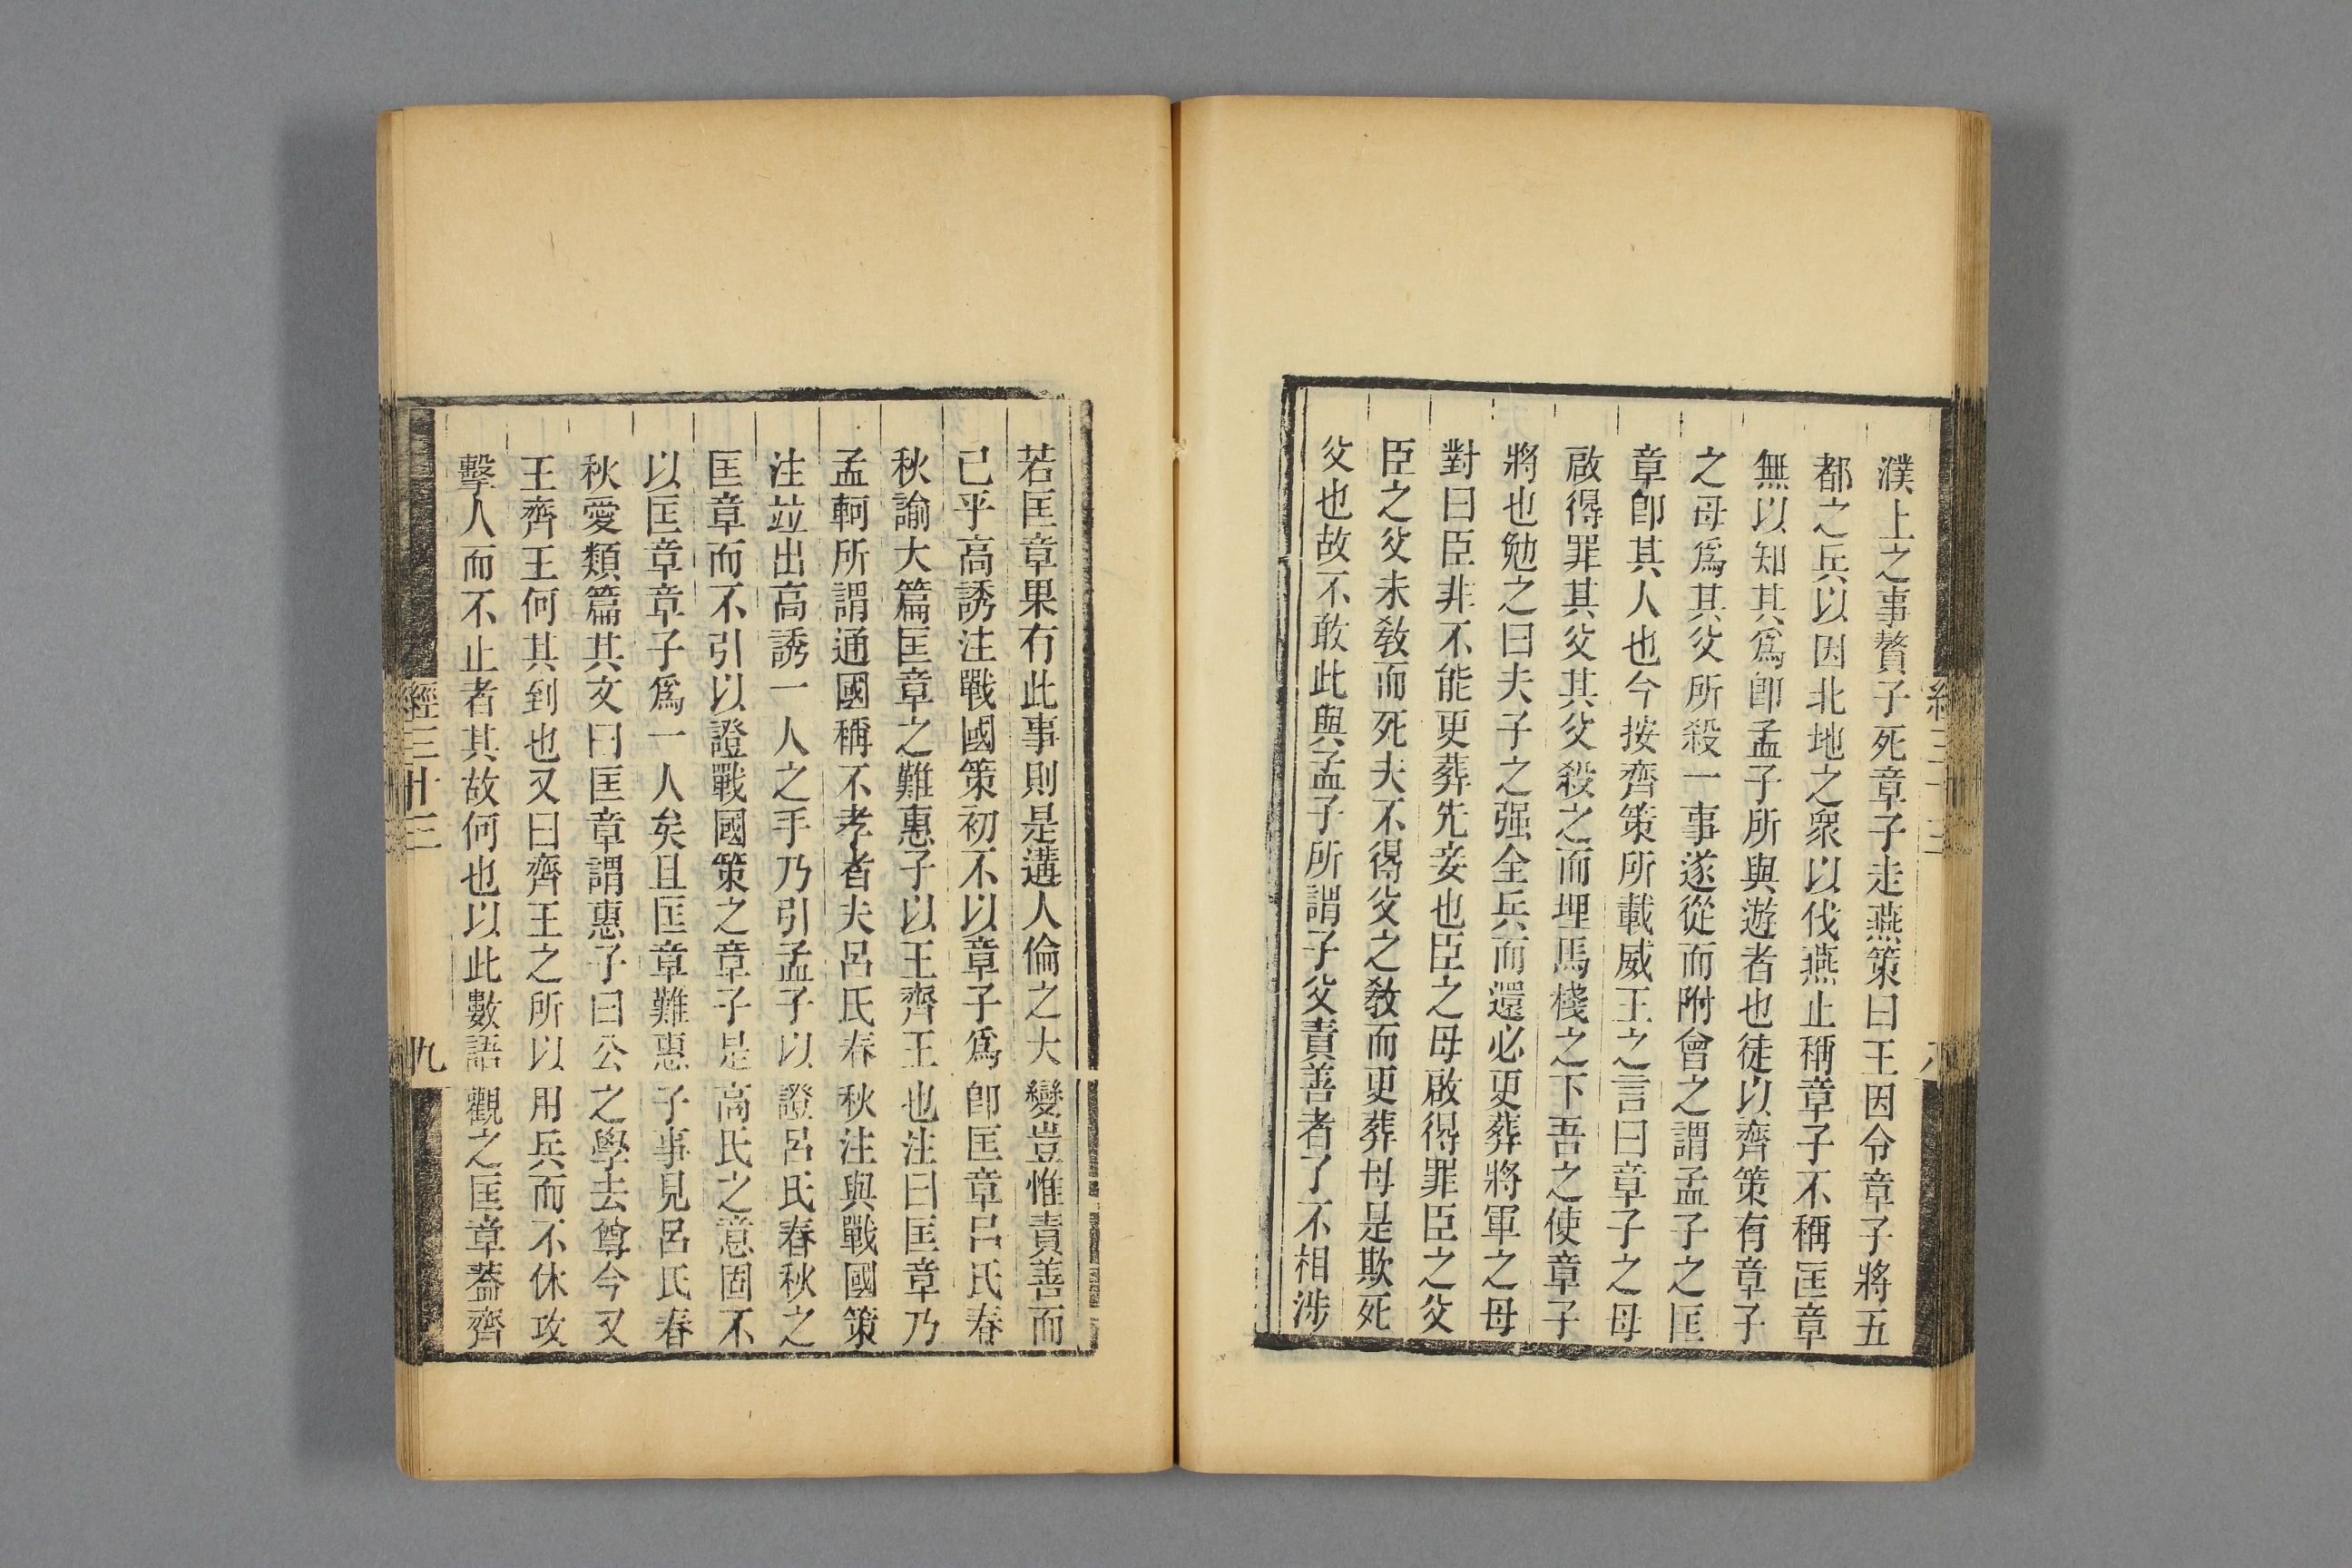 濮上之事贅子死章子走燕策曰王因令章子將五
都之兵以因北地之衆以伐燕止稱章子不稱匡章
無以知其爲卽孟子所與遊者也徒以齊策有章子
之母爲其父所殺一事遂從而附會之謂孟子之匡
章卽其人也今按齊策所載威王之言曰章子之母
啟得罪其父其父殺之而埋馬棧之下吾之使章子
將也勉之曰夫子之强全兵而還必更葬將軍之母
對曰臣非不能更葬先妾也臣之母啟得罪臣之父
臣之父未敎而死夫不得父之敎而更葬母是欺死
父也故不敢此與孟子所謂子父責善者了不相涉
若匡章果有此事則是遘人倫之大變豈惟責善而
已乎高誘注戰國策初不以章子爲卽匡章呂氏春
秋諭大篇匡章之難惠子以王齊王也注曰匡章乃
孟軻所謂通國稱不孝者夫呂氏春秋注與戰國策
注竝出高誘一人之手乃引孟子以證呂氏春秋之
匡章而不引以證戰國策之章子是高氏之意固不
以匡章章子爲一人矣且匡章難惠子事見呂氏春
秋愛類篇其文曰匡章謂惠子曰公之學去尊今又
王齊王何其到也又曰齊王之所以用兵而不休攻
擊人而不止者其故何也以此數語觀之匡章葢齊
經三十三
九